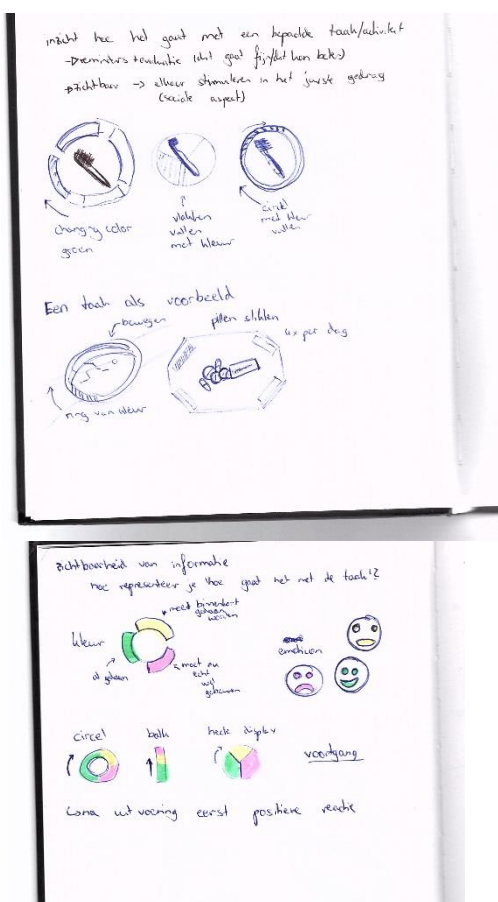 inzicht hoe het gaat met een bepaalde taak/activiteit
→ reminders + evaluatie (dit gaat fijn/dit kan beter)
zichtbaar → elkaar stimuleren in het juiste gedrag
(sociale aspect)
changing color
groen
vlakken
vullen
met kleur
cirkel
met kleur
vullen
Een taak als voorbeeld
bewegen
pillen slikken
4x per dag
ring van kleur
zichtbaarheid van informatie
hoe representeer je 'hoe gaat het met de taak'?
kleur
moet binnenkort
gedaan
worden
al gedaan
moet nu
echt
wel
gebeuren
emoticon
circel
balk
hele display
voortgang
na uitvoering eerst positieve reactie